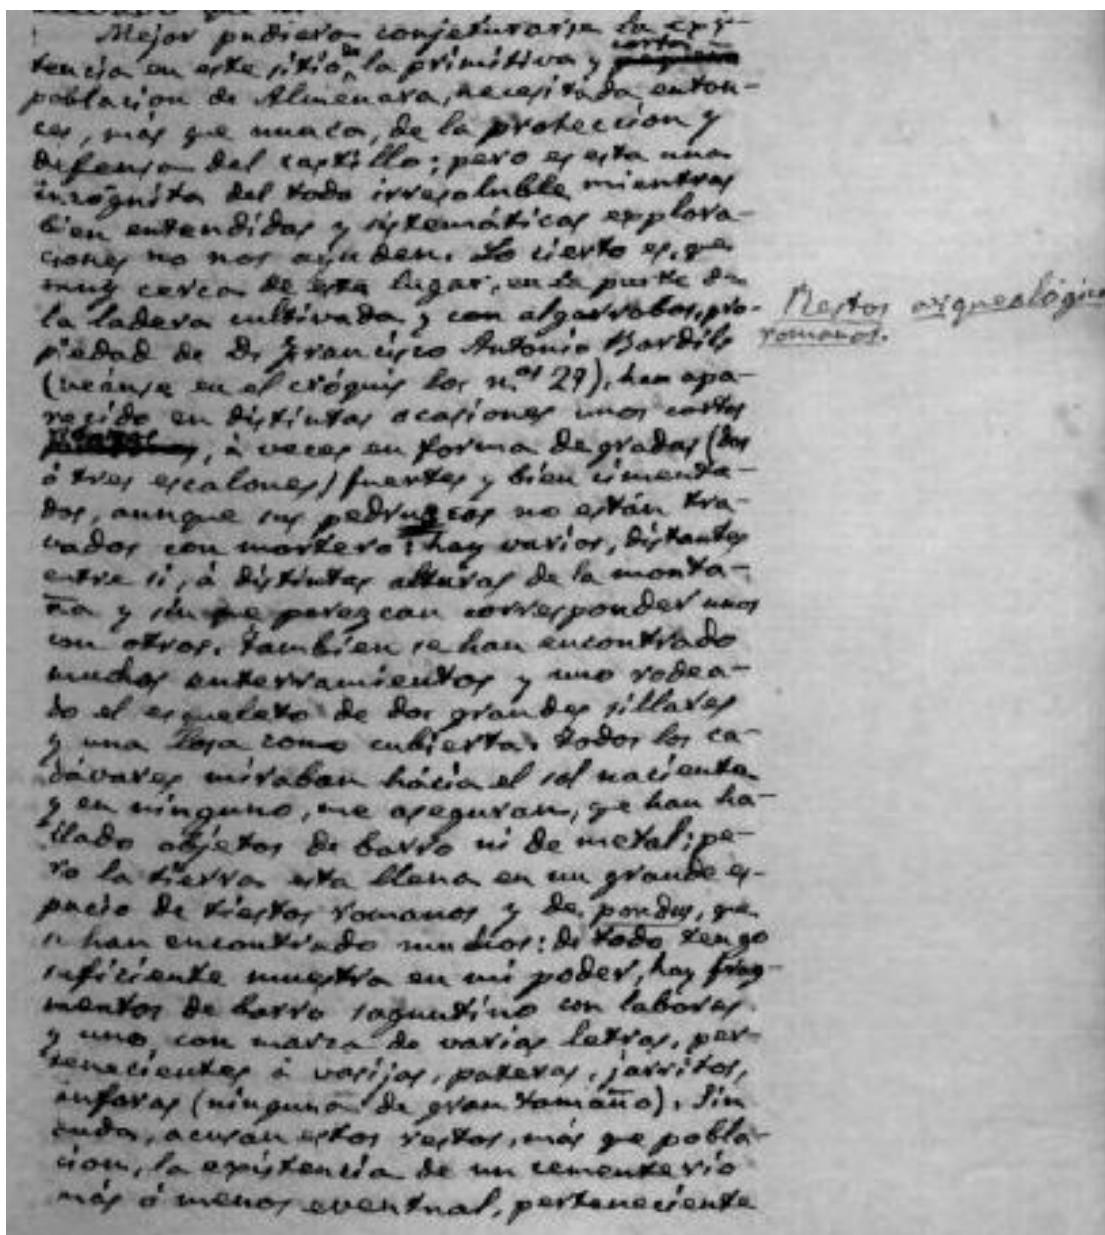 Mejor pudiera conjeturarse la exis-
tencia en este sitio de la primitiva y corta
poblacion de Almenara, necesitada enton-
ces, más que nunca, de la protección y
defensa del castillo; pero es esta una
incógnita del todo irresoluble mientras
bien entendidas y sistemáticas explora-
ciones no nos ayuden. Lo cierto es, que
muy cerca de este lugar, en la parte de
la ladera cultivada y con algarrobos, pro-
piedad de D. Francisco Antonio Bardils
(veánse en el cróquis los n.os 29), han apa-
recido en distintas ocasiones unos cortos
, á veces en forma de gradas (dos
ó tres escalones) fuertes y bien cimenta-
dos, aunque sus pedruscos no están tra-
vados con mortero: hay varios, distantes
entre sí, á distintas alturas de la monta-
ña y sin que parezcan corresponder unos
con otros. Tambien se han encontrado
muchos enterramientos y uno rodea-
do el esqueleto de dos grandes sillares
y una losa como cubierta. Todos los ca-
dáveres miraban hácia el sol naciente
y en ninguno, me aseguran, que han ha-
llado objetos de barro ni de metal; pe-
ro la tierra esta llena en un grande es-
pacio de tiestos romanos y de pondus, que
se han encontrado muchos: de todo tengo
suficiente muestra en mi poder, hay frag-
mentos de barro saguntino con labores
y uno con marca de varias letras, per-
tenecientes á vasijas, pateras, jarritos,
ánforas (ninguna de gran tamaño). Sin
duda, acusan estos restos, más que pobla-
cion, la existencia de un cementerio
más ó menos eventual, perteneciente
Restos arqueológicos
romanos.